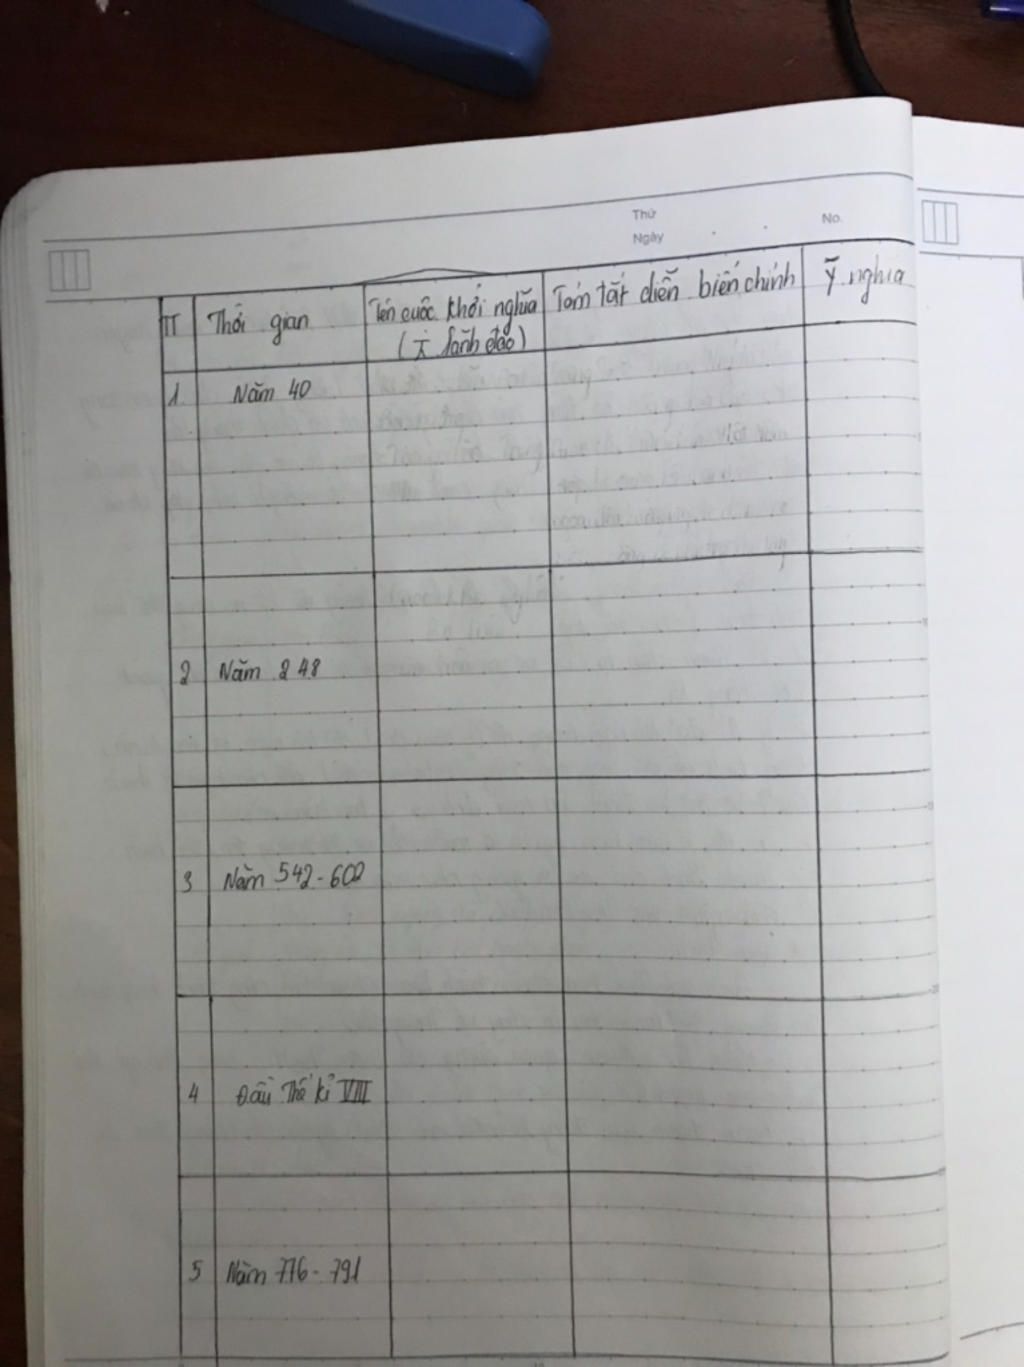 Thứ
Ngày
No.
TT Thời gian Tên cuộc khởi nghĩa Tóm tắt diễn biến chính Ý nghĩa
lãnh đạo)
1 Năm 40
2 Năm 248
3 Năm 542-602
4 Đầu Thế kỉ VIII
5 Năm 776-791